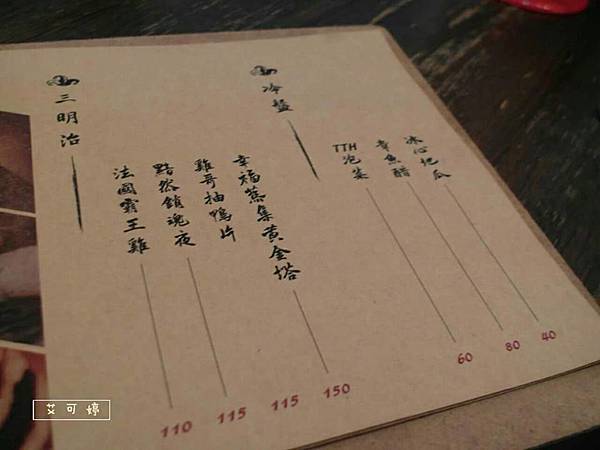 冷盤
冰心地瓜 40
章魚醋 80
TTH泡菜 60
三明治
幸福蕉集黃金塔 150
雞哥抽鴨片 115
黯然銷魂夜 115
法國霸王雞 110
艾可婷